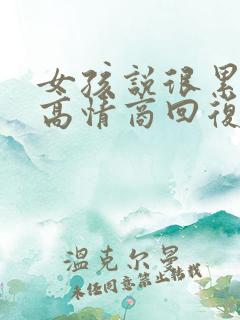 女孩說很累
高情商回復
溫克尔曼
未经同意禁止转载